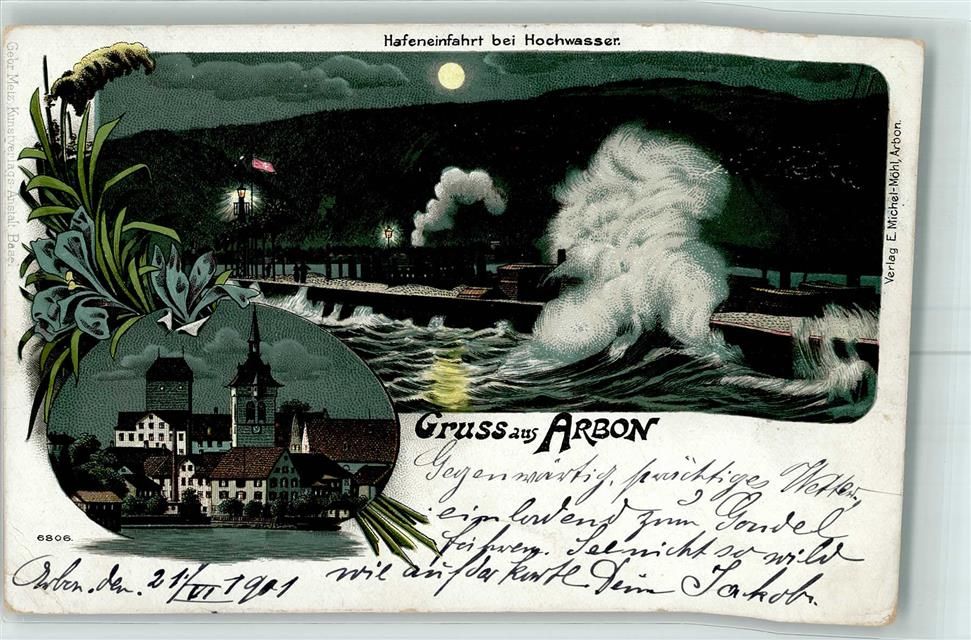 Hafeneinfahrt bei Hochwasser.
Gebr. Metz, Kunstverlags-Anstalt, Basel.
Verlag E. Michel-Möhl, Arbon.
Gruss aus ARBON
Gegenwärtig, prächtiges Wetter,
einladend zum Gondel
fahren. See nicht so wild
wie auf der Karte Dein Jakob.
6806.
Arbon, den 21./VI 1901